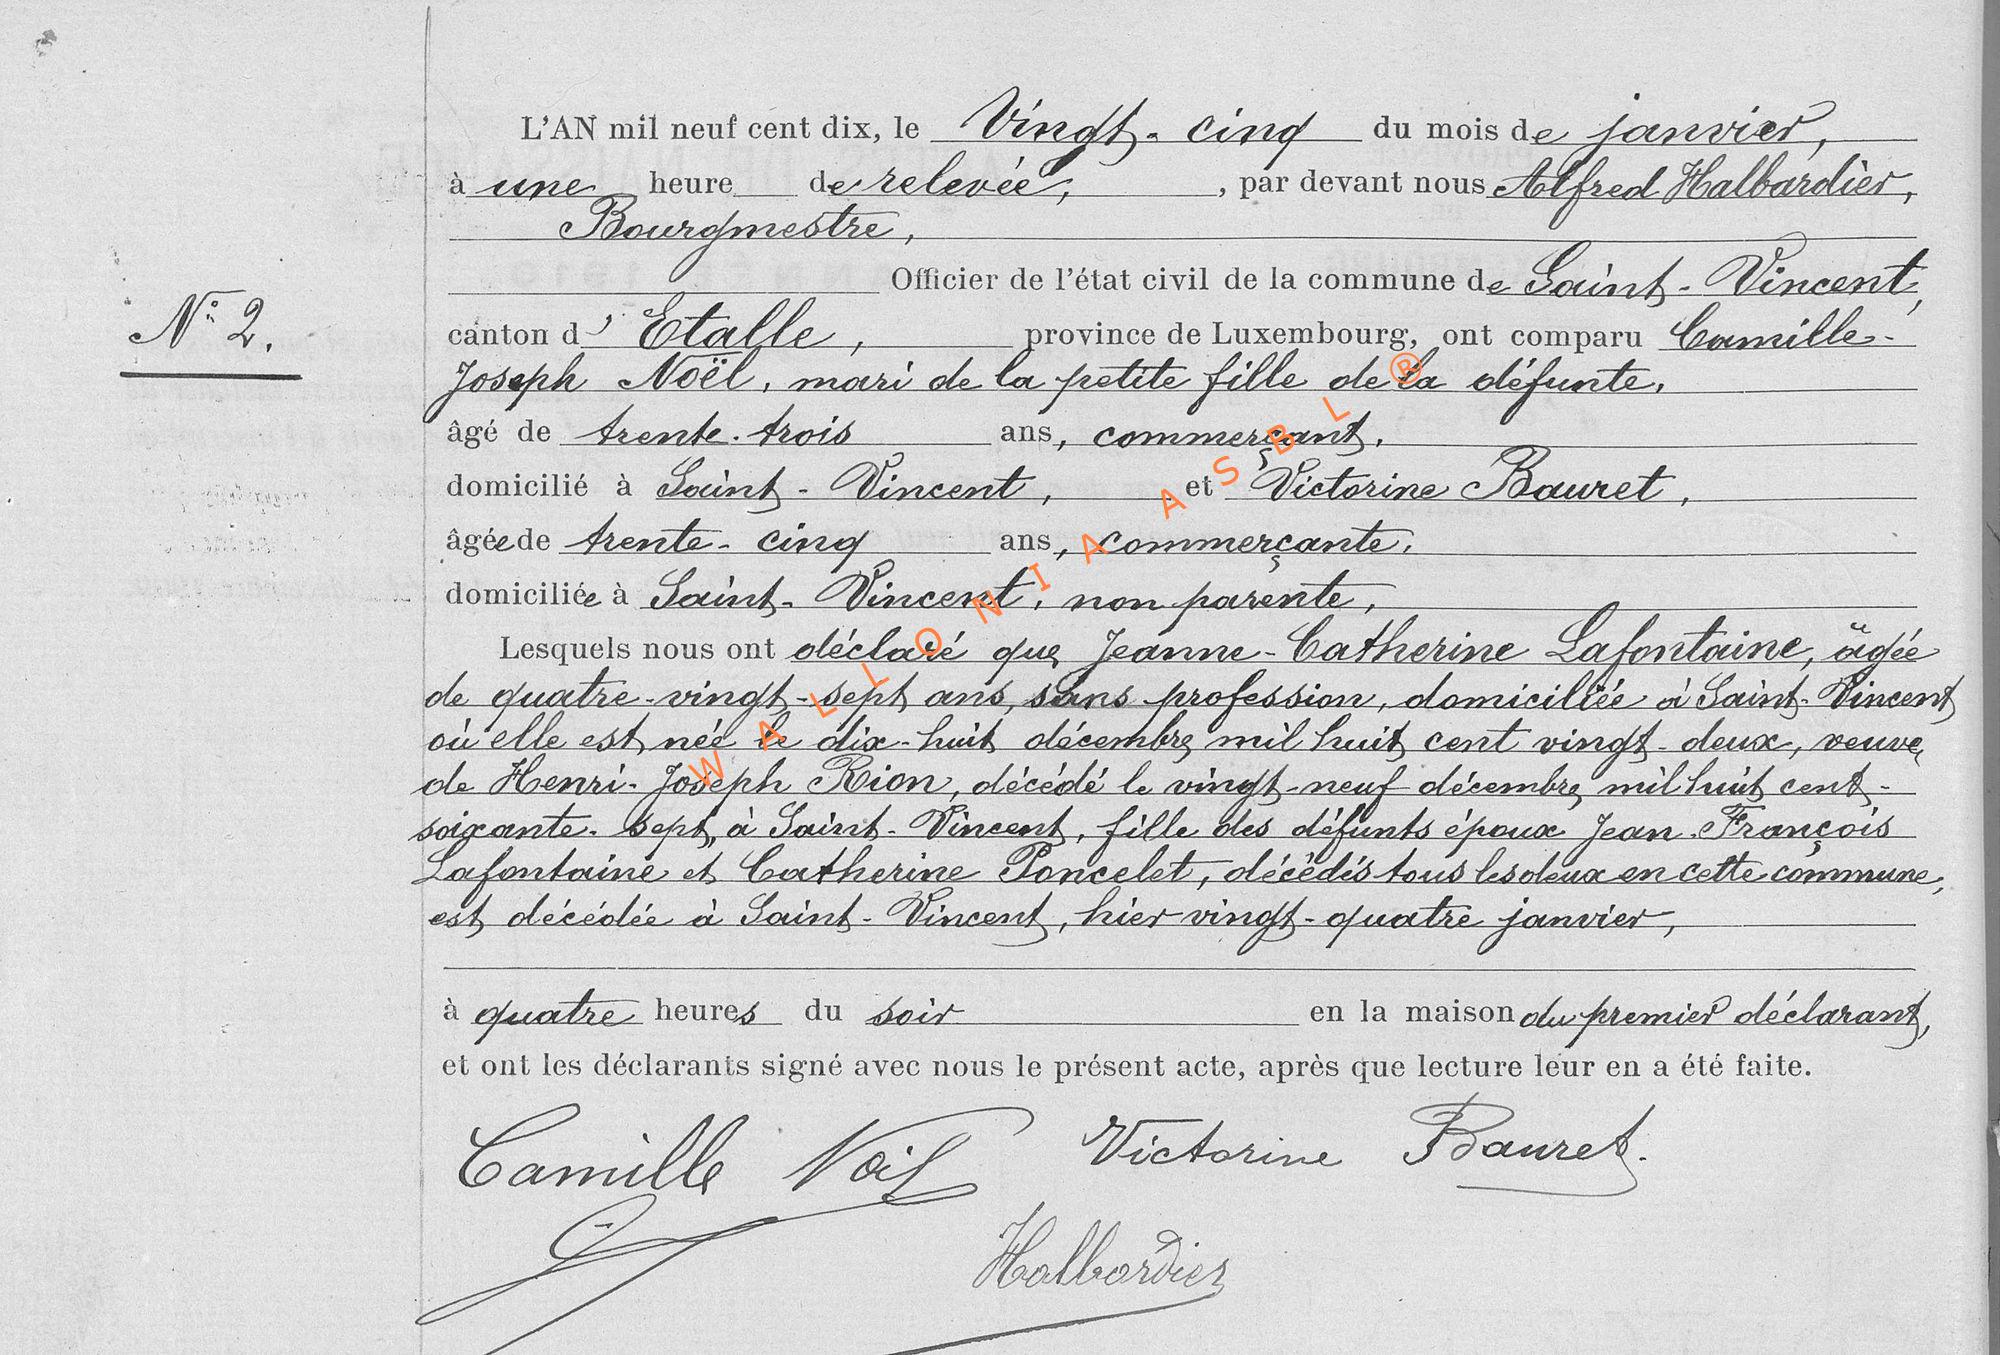 L'AN mil neuf cent dix, le Vingt-cinq du mois de janvier,
à une heure de relevée, , par devant nous Alfred Halbardier,
Bourgmestre,
Officier de l'état civil de la commune de Saint-Vincent,
N° 2.
canton d'Etalle, province de Luxembourg, ont comparu Camille-
Joseph Noël, mari de la petite fille de la défunte,
âgé de trente-trois ans, commerçant,
domicilié à Saint-Vincent, et Victorine Bauret,
âgée de trente-cinq ans, commerçante,
domiciliée à Saint-Vincent, non parente,
Lesquels nous ont déclaré que Jeanne-Catherine Lafontaine, âgée
de quatre-vingt-sept ans, sans profession, domiciliée à Saint-Vincent
où elle est née le dix-huit décembre mil huit cent vingt-deux, veuve
de Henri-Joseph Rion, décédé le vingt-neuf décembre mil huit cent-
soixante-sept, à Saint-Vincent, fille des défunts époux Jean-François
Lafontaine et Catherine Poncelet, décédés tous les deux en cette commune,
est décédée à Saint-Vincent, hier vingt-quatre janvier,
à quatre heures du soir en la maison du premier déclarant,
et ont les déclarants signé avec nous le présent acte, après que lecture leur en a été faite.
Camille Noël Victorine Bauret.
Halbardier
WALLONIA ASBL ®